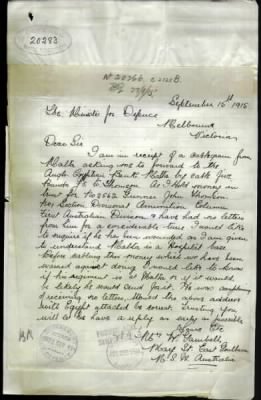 20283
September 15th 1915
The Minister for Defence
Melbourne
Victoria
Dear Sir
I am in receipt of a cablegram from
Malta asking me to forward to the
Anglo Egyptian Bank Malta by cable five
Pounds J. E. Thomson. As I hold money in
Gunner John Thomson
Section Divisional Ammunition Column
First Australian Division & have had no letters
from him for a considerable time I would like
to enquire if he has been wounded as I am given
to understand Malta is a Hospital Base
before cabling this money which we have been
warned against doing I would like to know
if his signature is at Malta or if it would
be likely he would send for it. He was complaining
of receiving no letters. Would the above address
with Egypt attached be correct. Trusting you
will let me have a reply as early as possible
Yours Etc
W. Gambell
St. East Goulburn
N. S. W. Australia